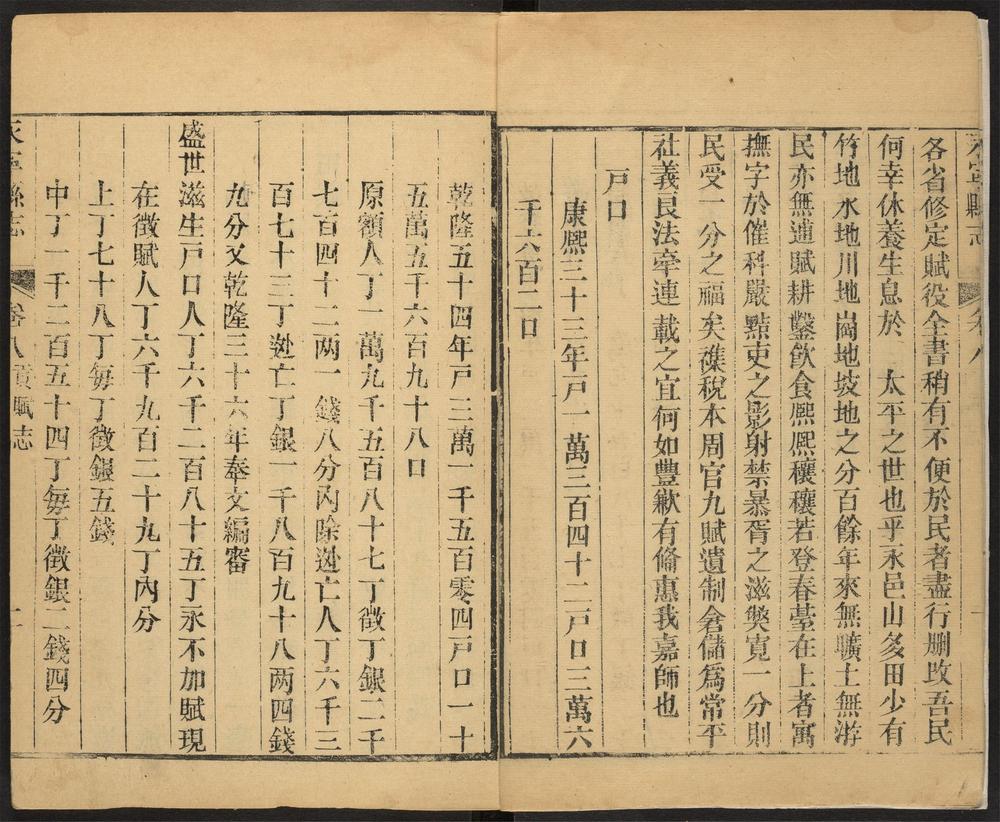 永寧縣志 卷八
各省修定賦役全書稍有不便於民者盡行刪改吾民
何幸休養生息於 太平之世也乎永邑山多田少有
竹地水地川地崗地坡地之分百餘年來無曠土無游
民亦無逋賦耕鑿飲食熙熙穰穰若登春臺在上者寓
撫字於催科嚴黠吏之影射禁暴胥之滋弊寬一分則
民受一分之福矣雜稅本周官九賦遺制倉儲爲常平
社義良法牽連載之宜何如豐歉有偹惠我嘉師也
戸口
康熙三十三年戸一萬三百四十二戸口三萬六
千六百二口
乾隆五十四年戸三萬一千五百零四戸口一十
五萬五千六百九十八口
原額人丁一萬九千五百八十七丁徵丁銀二千
七百四十二两一錢八分內除迯亡人丁六千三
百七十三丁迯亡丁銀一千八百九十八两四錢
九分又乾隆三十六年奉文編審
盛世滋生戸口人丁六千二百八十五丁永不加賦現
在徵賦人丁六千九百二十九丁內分
上丁七十八丁每丁徵銀五錢
中丁一千二百五十四丁每丁徵銀二錢四分
永寧縣志 卷八 貢賦志 二